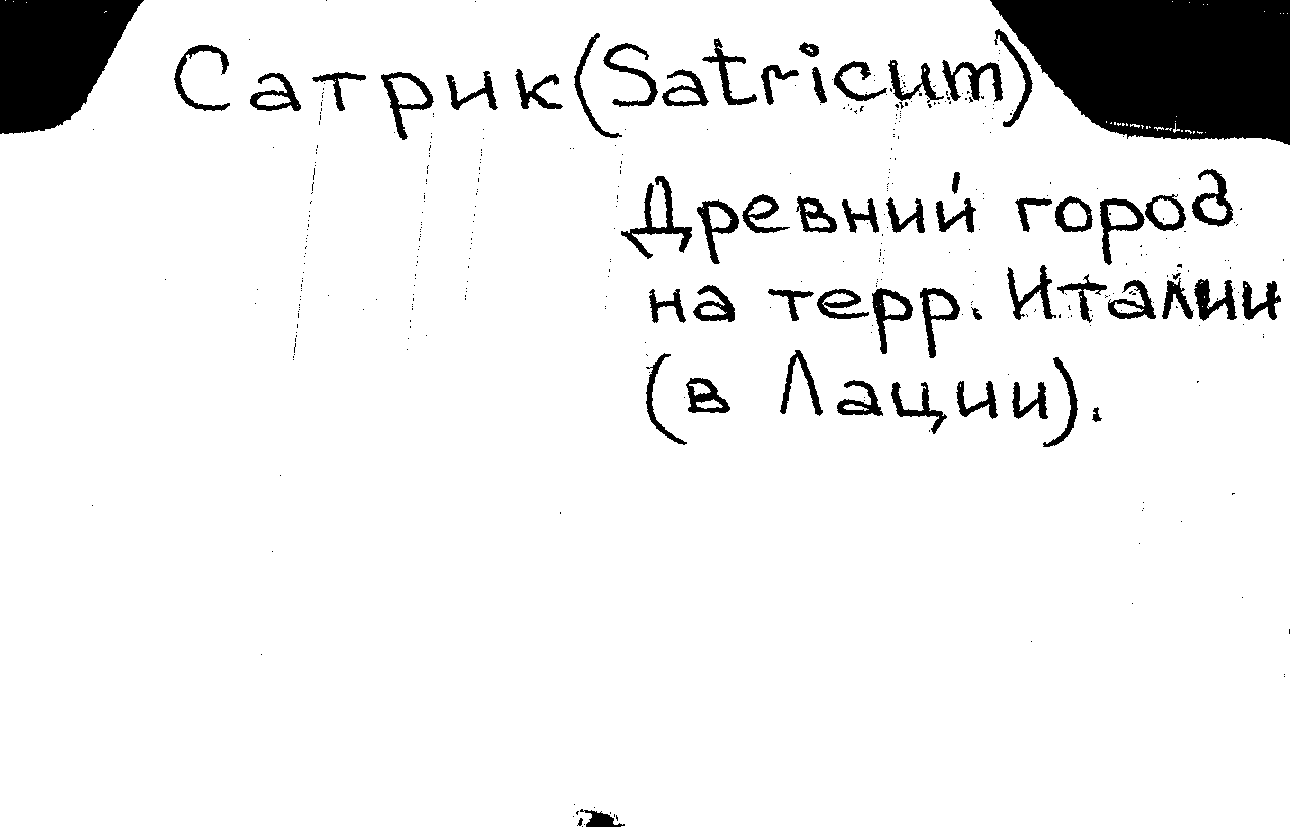 Сатрик (Satricum)
Древний город
на терр. Италии
(в Лации).